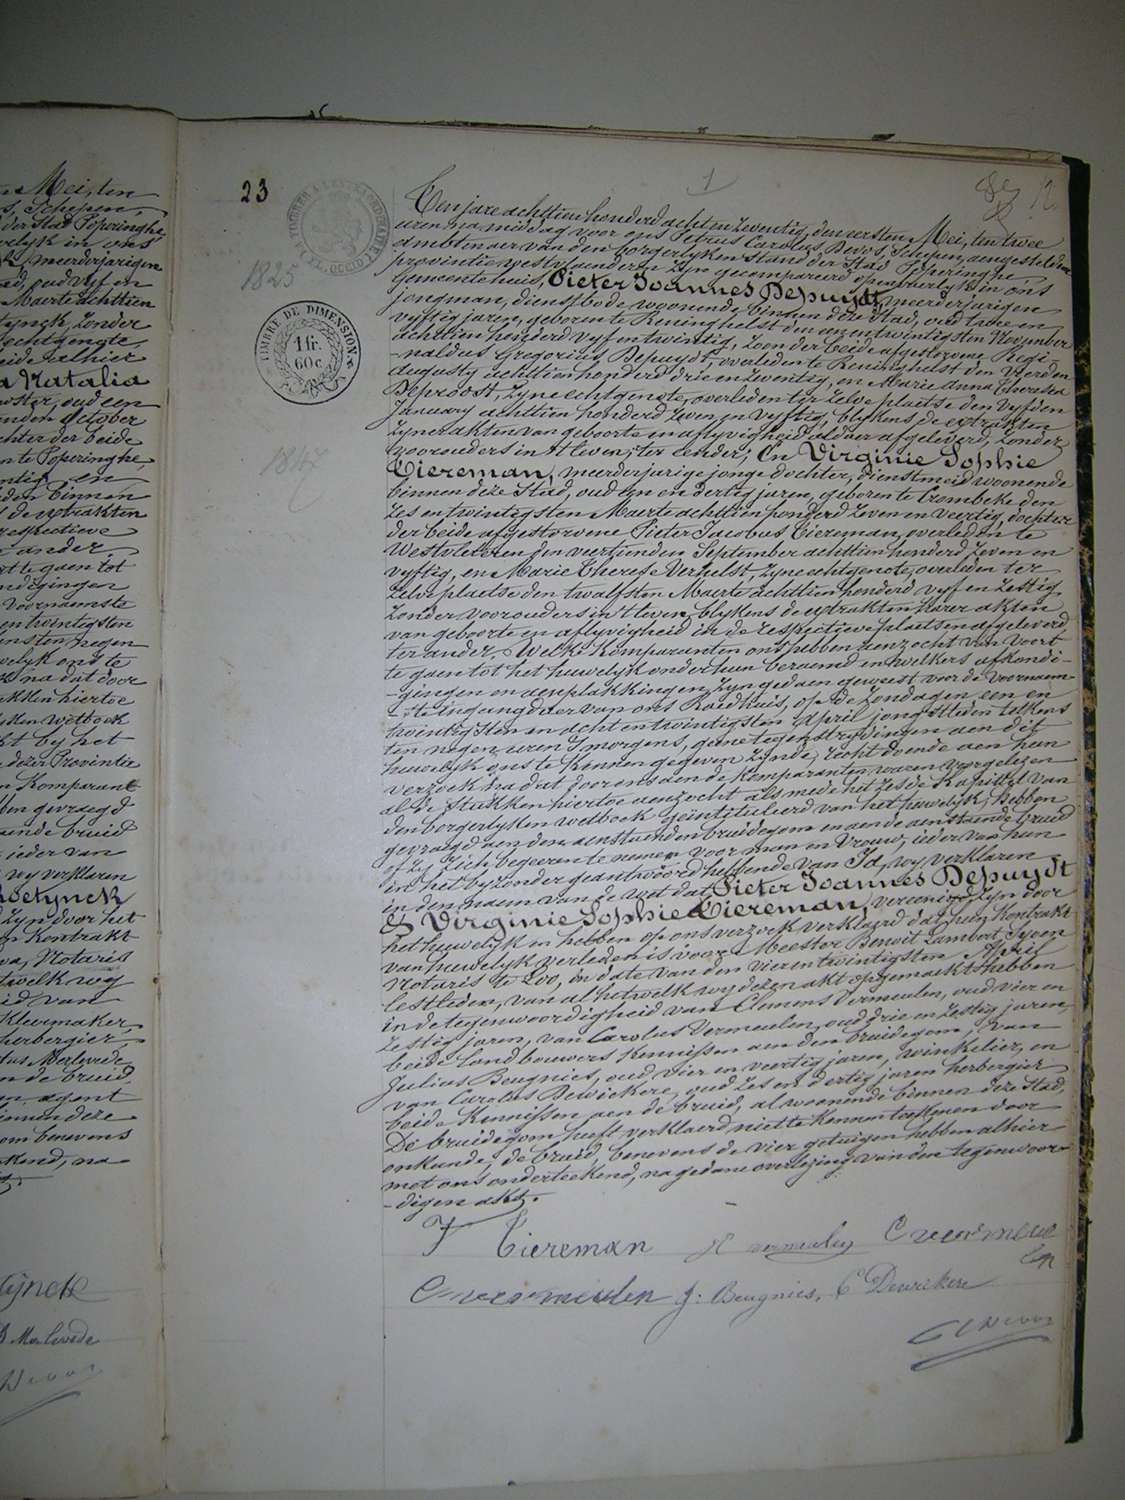 Mei, ten
s, Schepen,
der Stad Poperinghe
velyk in ons
meerderjarigen
ad, oud vyf en
Maerte achttien
tynck, zonder
echtgenote,
eide alhier
a Natalia
oster, oud een
nden October
chter der beide
n te Poperinghe,
ntig, en
den binnen
de extrakten
respectieve
ander.
rt te gaen tot
ndigingen
voornaemste
en twintigsten
ensten, negen
welyk ons te
na dat door
ukken hiertoe
yken wetboek
kt by het
dezer Provintie
Komparant
ben gevraegd
aende bruid
ieder van
wy verklaren
Roetynck
d zyn door het
n Kontrakt
va, Notaris
twelk wy
id van
Kleermaker,
herbergier,
tus Merlevede
n de bruid,
en agent
binnen deze
om benevens
kend, na
Cynck
B Merlevede
Devos
23
1
12
1825
TIMBRE DE DIMENSION
1 fr.
60 c.
1847
Ten jare achttien honderd acht en zeventig, den eersten Mei, ten twee
uren na middag voor ons Petrus Carolus Devos, Schepen, aengestelden
ambtenaer van den borgerlyken stand der Stad Poperinghe
provintie westvlaenderen zyn gecompareerd openbaerlyk in ons
Gemeentehuis, Pieter Joannes Depuydt, meerderjarigen
jongman, dienstbode woonende binnen deze stad, oud twee en
vyftig jaren, geboren te Reninghelst den een en twintigsten November
achttien honderd vyf en twintig, zoon der beide afgestorvene Regi-
-naldus Gregorius Depuydt, overleden te Reninghelst den vierden
augusty achttien honderd drie en zeventig, en Marie Anna Theresia
Deproost, zyne echtgenote, overleden ter zelve plaetse den vyfden
January achttien honderd zeven en vyftig, blykens de extrakten
zyner akten van geboorte en aflyvigheid aldaer afgeleverd, zonder
voorouders in 't leven, ter eender; En Virginie Sophie
Tiereman, meerderjarige jonge dochter, dienstmeid woonende
binnen deze Stad, oud een en dertig jaren, geboren te Crombeke den
zes en twintigsten Maerte achttien honderd zeven en veertig, dochter
der beide afgestorvene Pieter Jacobus Tiereman, overleden te
Westvleteren den veertienden September achttien honderd zeven en
vyftig, en Marie Therese Verhelst, zyne echtgenote, overleden ter
zelve plaetse den twalfsten Maerte achttien honderd vyf en zestig
zonder voorouders in 't leven, blykens de extrakten harer akten
van geboorte en aflyvigheid in de respectieve plaetsen afgeleverd
ter ander. Welke komparanten ons hebben aenzocht van voort
te gaen tot het huwelyk onder hun beraemd en welkers afkondi-
-gingen en aenplakkingen zyn gedaen geweest voor de voornaem-
-ste ingangdeer van ons Raedhuis, op de zondagen een en
twintigsten en acht en twintigsten April jongstleden telkens
ten negen uren 's morgens, geene tegenstrydingen aen dit
huwelyk ons te kennen gegeven zynde, recht doende aen hun
verzoek na dat door ons aen de komparanten waren voorgelezen
al de stukken hiertoe aenzocht als mede het zesde kapittel van
den borgerlyken wetboek geïntituleerd van het huwelyk, hebben
gevraegd aen den aenstaenden bruidegom en aen de aenstaende bruid
of zy zich begeeren te nemen voor man en vrouw, ieder van hun
in het byzonder geantwoord hebbende van Ja, wy verklaren
in den naem van de wet dat Pieter Joannes Depuydt
& Virginie Sophie Tiereman, vereenigd zyn door
het huwelyk en hebben op ons verzoek verklaerd dat hun Kontrakt
van huwelyk verleden is voor Meester Benoit Lambert Syoen
notaris te Loo, in date van den vier en twintigsten April
lestleden, van al hetwelk wy dezen akt opgemaekt hebben
in de tegenwoordigheid van Clemens Vermeulen, oud vier en
zestig jaren, van Carolus Vermeulen, oud drie en zestig jaren,
beide Landbouwers kennissen aen den bruidegom, van
Julius Beugnies, oud vier en veertig jaren, winkelier, en
van Carolus Dewickere, oud zes en dertig jaren herbergier
beide kennissen aen de bruid, al woonende binnen deze Stad,
De bruidegom heeft verklaerd niet te kennen teekenen door
onkunde, de bruid, benevens de vier getuigen hebben alhier
met ons onderteekend, na gedane overlezing van den tegenwoor-
-digen akt.
V Tiereman vermeulen C vermeue
len
C vermeulen J: Beugnies, C Dewickere
C Devos